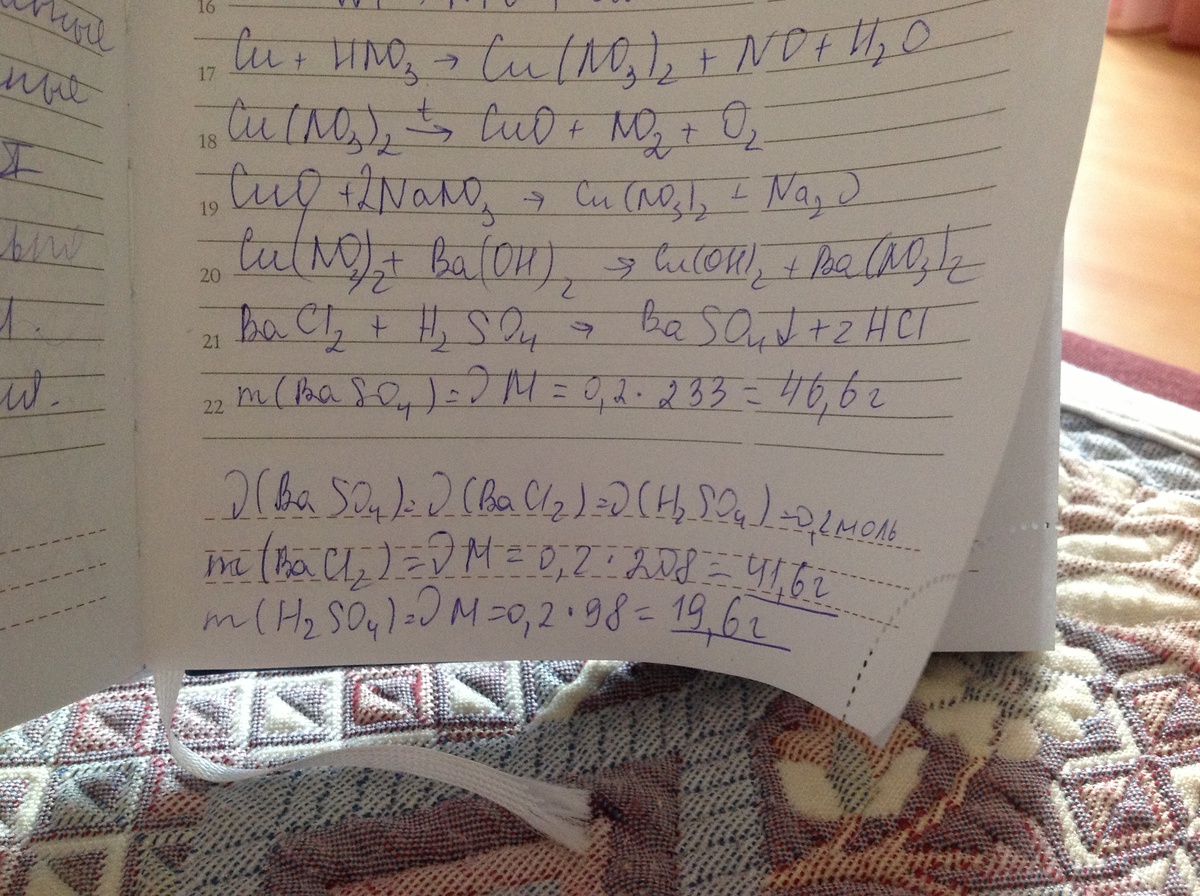 ные
ные
I
16
17 Cu + HNO₃ → Cu(NO₃)₂ + NO + H₂O
18 Cu(NO₃)₂ t→ CuO + NO₂ + O₂
19 CuO + 2NaNO₃ → Cu(NO₃)₂ + Na₂O
20 Cu(NO₃)₂ + Ba(OH)₂ → Cu(OH)₂ + Ba(NO₃)₂
21 BaCl₂ + H₂SO₄ → BaSO₄↓ + 2HCl
22 m(BaSO₄) = ν M = 0,2 · 233 = 46,6 г
ν(BaSO₄) = ν(BaCl₂) = ν(H₂SO₄) = 0,2 моль
m(BaCl₂) = ν M = 0,2 · 208 = 41,6 г
m(H₂SO₄) = ν M = 0,2 · 98 = 19,6 г